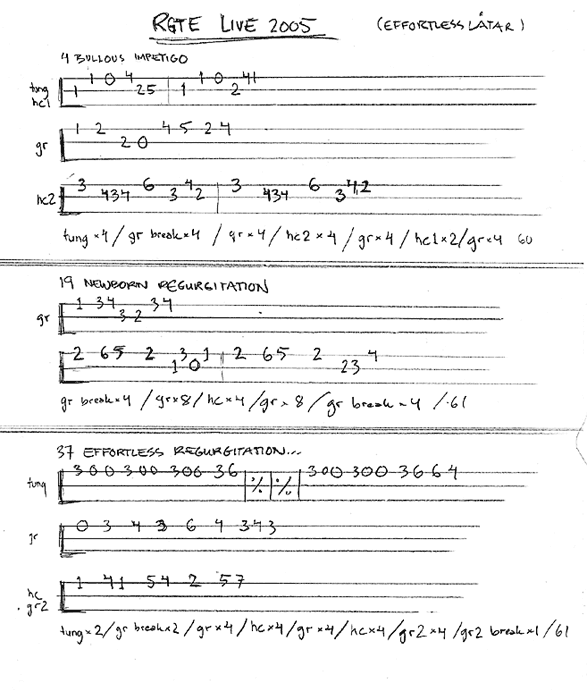 RGTE LIVE 2005 (EFFORTLESS LÅTAR)
4 BULLOUS IMPETIGO
tung hc1
1 1 0 4 25 1 1 0 2 41
gr
1 2 2 0 4 5 2 4
hc2
3 434 6 3 4 2 3 434 6 3 4 2
tung ×4 / gr break ×4 / gr ×4 / hc2 ×4 / gr ×4 / hc1 ×2 / gr ×4 60
19 NEWBORN REGURGITATION
gr
1 34 3 2 34
2 65 2 1 3 0 1 2 65 2 23 4
gr break ×4 / gr×8 / hc ×4 / gr × 8 / gr break × 4 / 61
37 EFFORTLESS REGURGITATION...
tung
300 300 300 36 % % 300 300 3664
gr
0 3 4 3 6 4 343
hc gr2
1 41 54 2 57
tung × 2 / gr break ×2 / gr ×4 / hc ×4 / gr ×4 / hc ×4 / gr2 ×4 / gr2 break ×1 / 61